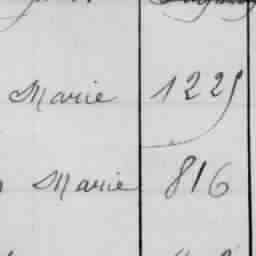 Marie 1225
Marie 816